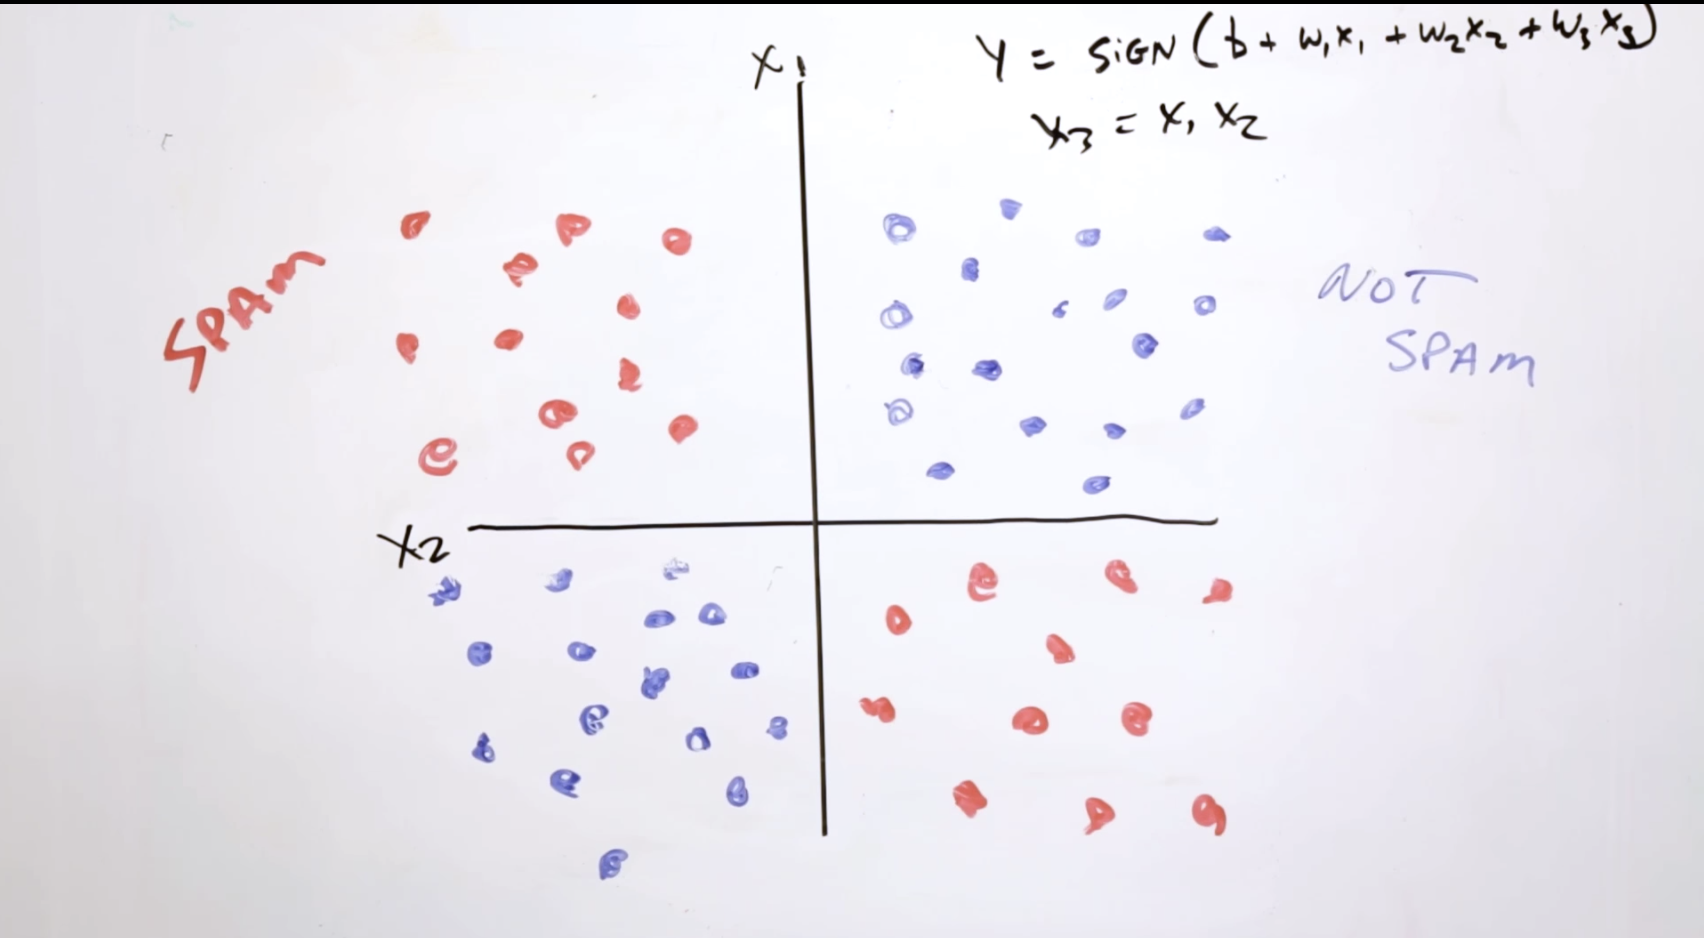 X1
Y = SIGN (b + W1X1 + W2X2 + W3X3)
X3 = X1 X2
SPAM
NOT
SPAM
X2